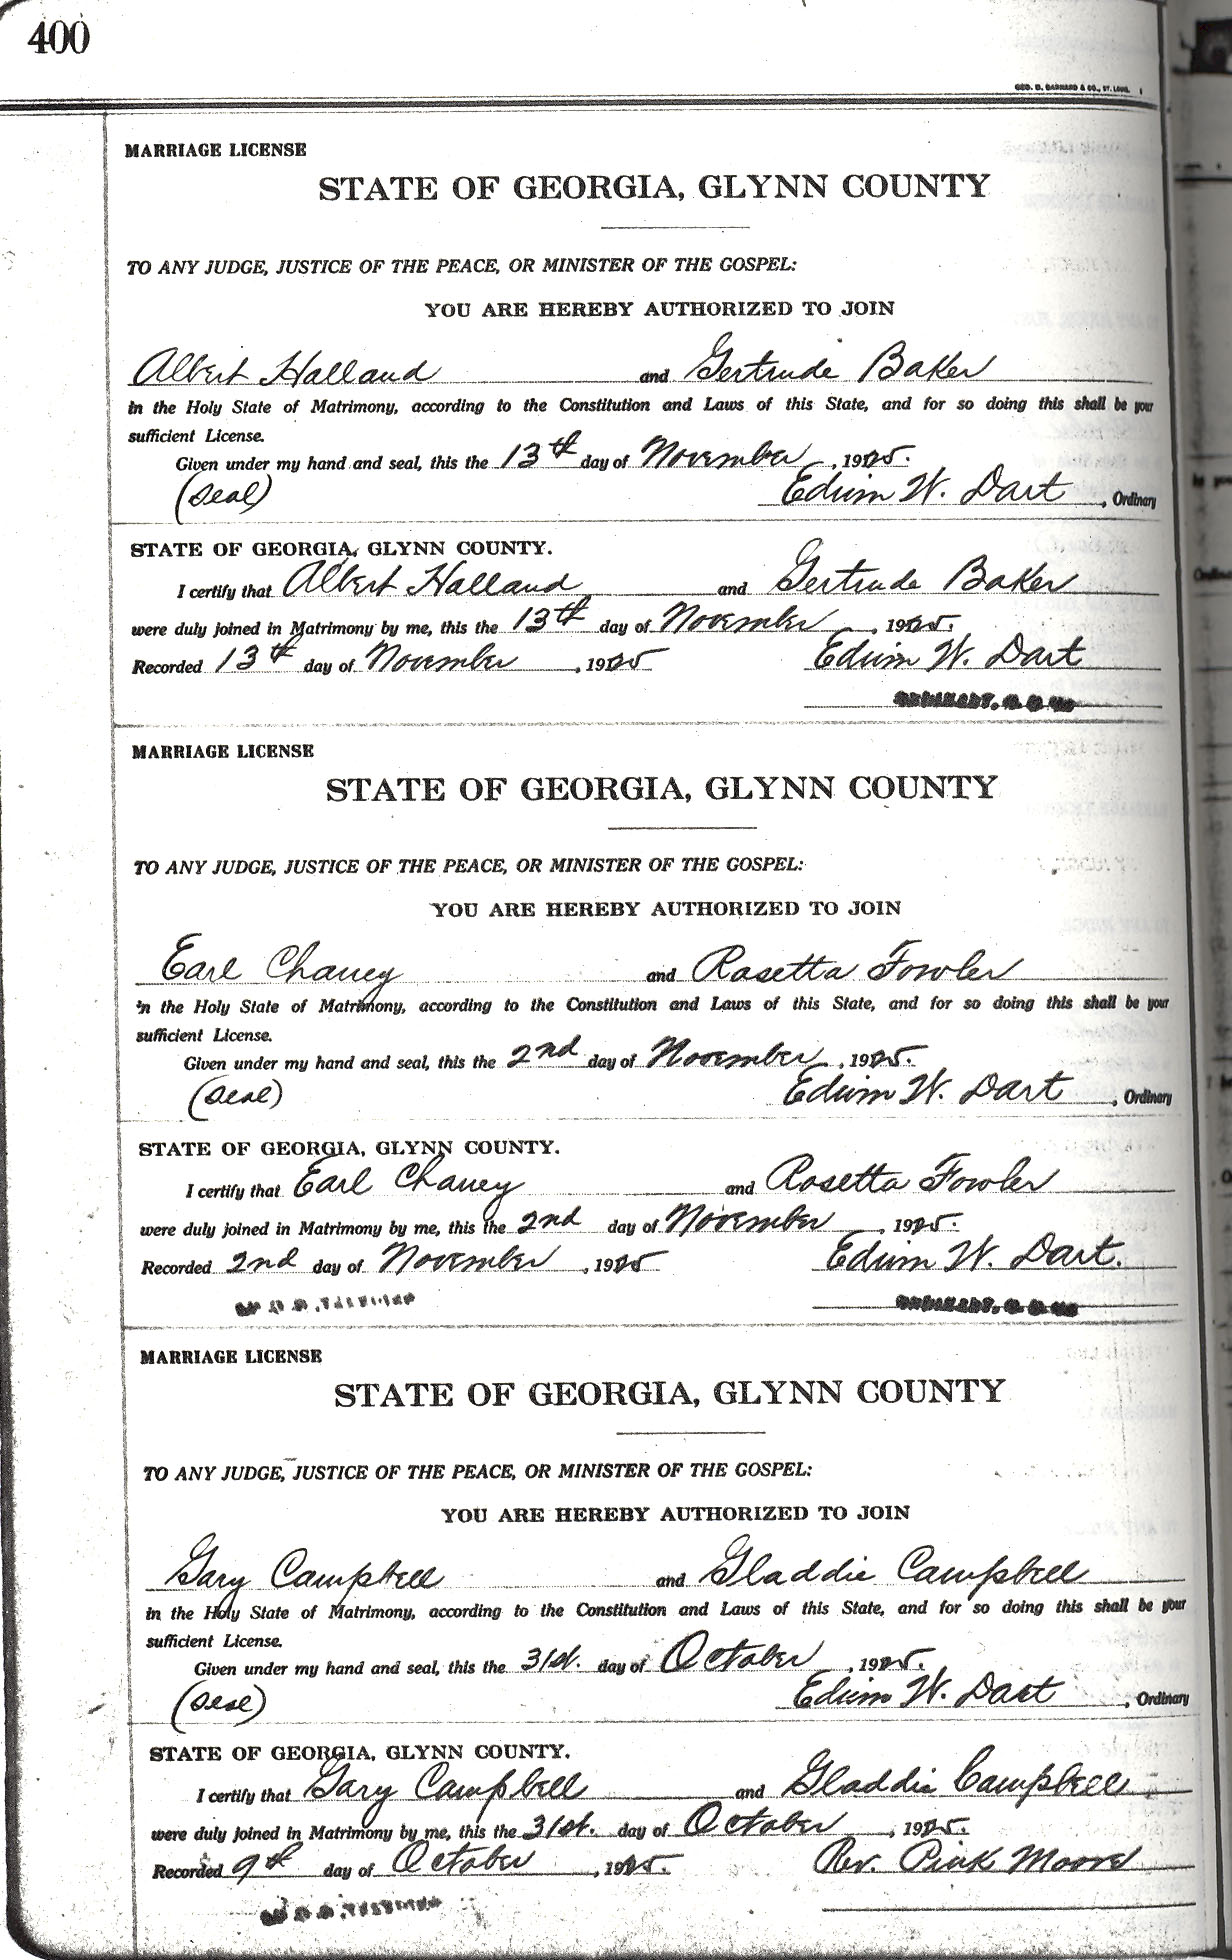 400
GEO. D. BARNARD & CO., ST. LOUIS.
MARRIAGE LICENSE
STATE OF GEORGIA, GLYNN COUNTY
TO ANY JUDGE, JUSTICE OF THE PEACE, OR MINISTER OF THE GOSPEL:
YOU ARE HEREBY AUTHORIZED TO JOIN
Albert Halland and Gertrude Baker
in the Holy State of Matrimony, according to the Constitution and Laws of this State, and for so doing this shall be your
sufficient License.
Given under my hand and seal, this the 13th day of November, 1925.
(Seal) Edwin W. Dart, Ordinary
STATE OF GEORGIA, GLYNN COUNTY.
I certify that Albert Halland and Gertrude Baker
were duly joined in Matrimony by me, this the 13th day of November, 1925.
Recorded 13th day of November, 1925 Edwin W. Dart
MARRIAGE LICENSE
STATE OF GEORGIA, GLYNN COUNTY
TO ANY JUDGE, JUSTICE OF THE PEACE, OR MINISTER OF THE GOSPEL:
YOU ARE HEREBY AUTHORIZED TO JOIN
Earl Chaney and Rosetta Fowler
in the Holy State of Matrimony, according to the Constitution and Laws of this State, and for so doing this shall be your
sufficient License.
Given under my hand and seal, this the 2nd day of November, 1925.
(Seal) Edwin W. Dart, Ordinary
STATE OF GEORGIA, GLYNN COUNTY.
I certify that Earl Chaney and Rosetta Fowler
were duly joined in Matrimony by me, this the 2nd day of November, 1925.
Recorded 2nd day of November, 1925 Edwin W. Dart.
MARRIAGE LICENSE
STATE OF GEORGIA, GLYNN COUNTY
TO ANY JUDGE, JUSTICE OF THE PEACE, OR MINISTER OF THE GOSPEL:
YOU ARE HEREBY AUTHORIZED TO JOIN
Gary Campbell and Gladdie Campbell
in the Holy State of Matrimony, according to the Constitution and Laws of this State, and for so doing this shall be your
sufficient License.
Given under my hand and seal, this the 31st. day of October, 1925.
(Seal) Edwin W. Dart, Ordinary
STATE OF GEORGIA, GLYNN COUNTY.
I certify that Gary Campbell and Gladdie Campbell
were duly joined in Matrimony by me, this the 31st. day of October, 1925.
Recorded 9th day of October, 1925. Rev. Pink Moore